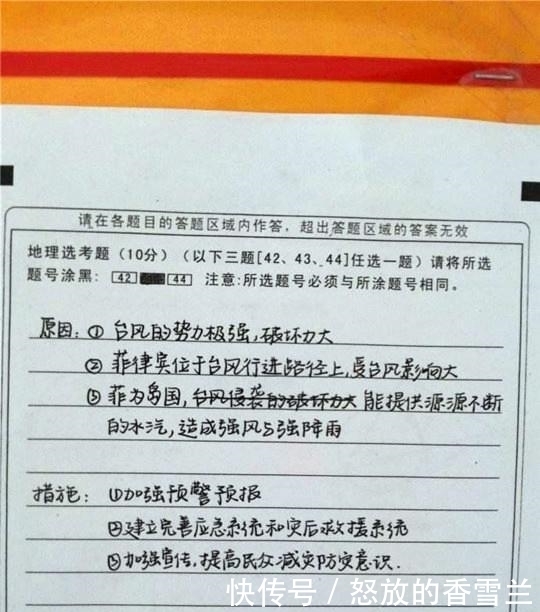 请在各题目的答题区域内作答，超出答题区域的答案无效
地理选考题（10分）（以下三题[42、43、44]任选一题）请将所选
题号涂黑： 42 44 注意:所选题号必须与所涂题号相同。
原因：① 台风的势力极强，破坏力大
② 菲律宾位于台风行进路径上，受台风影响大
③ 菲为岛国，台风侵袭的破坏力大 能提供源源不断
的水汽，造成强风与强降雨
措施：①加强预警预报
②建立完善应急系统和灾后救援系统
③加强宣传，提高民众减灾防灾意识.
快传号 / 怒放的香雪兰